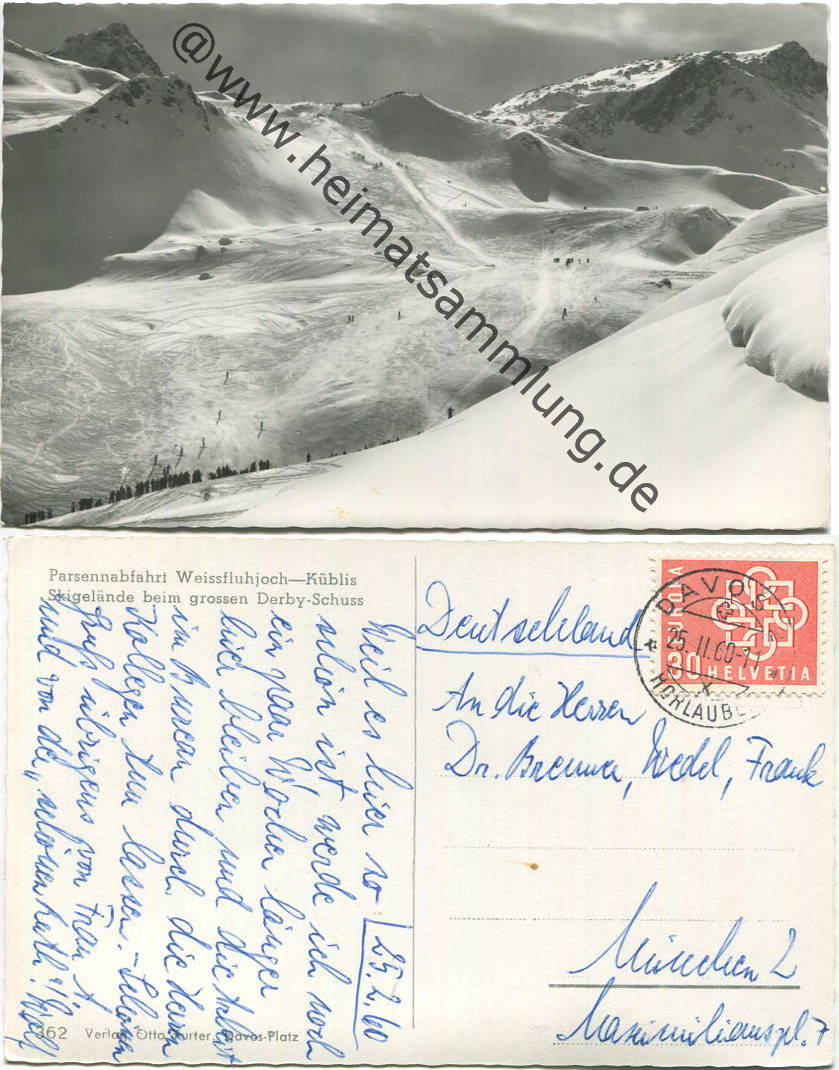 @www.heimatsammlung.de
Parsennabfahrt Weissfluhjoch—Küblis
Skigelände beim grossen Derby-Schuss
25.2.60
Weil es hier so
schön ist werde ich noch
ein paar Wochen länger
hier bleiben und die Arbeit
im Bureau durch die Herren
Kollegen tun lassen. - Schönen
Gruß übrigens von Frau A.
und von der "schönen Kath."! Wolf
362 Verlag Otto Furter, Davos-Platz
Deutschland
An die Herren
Dr. Brenner, Wedel, Frank
München 2
Maximilianspl. 7
EUROPA
30 HELVETIA
DAVOS
25.II.60-11
HORLAUBEN